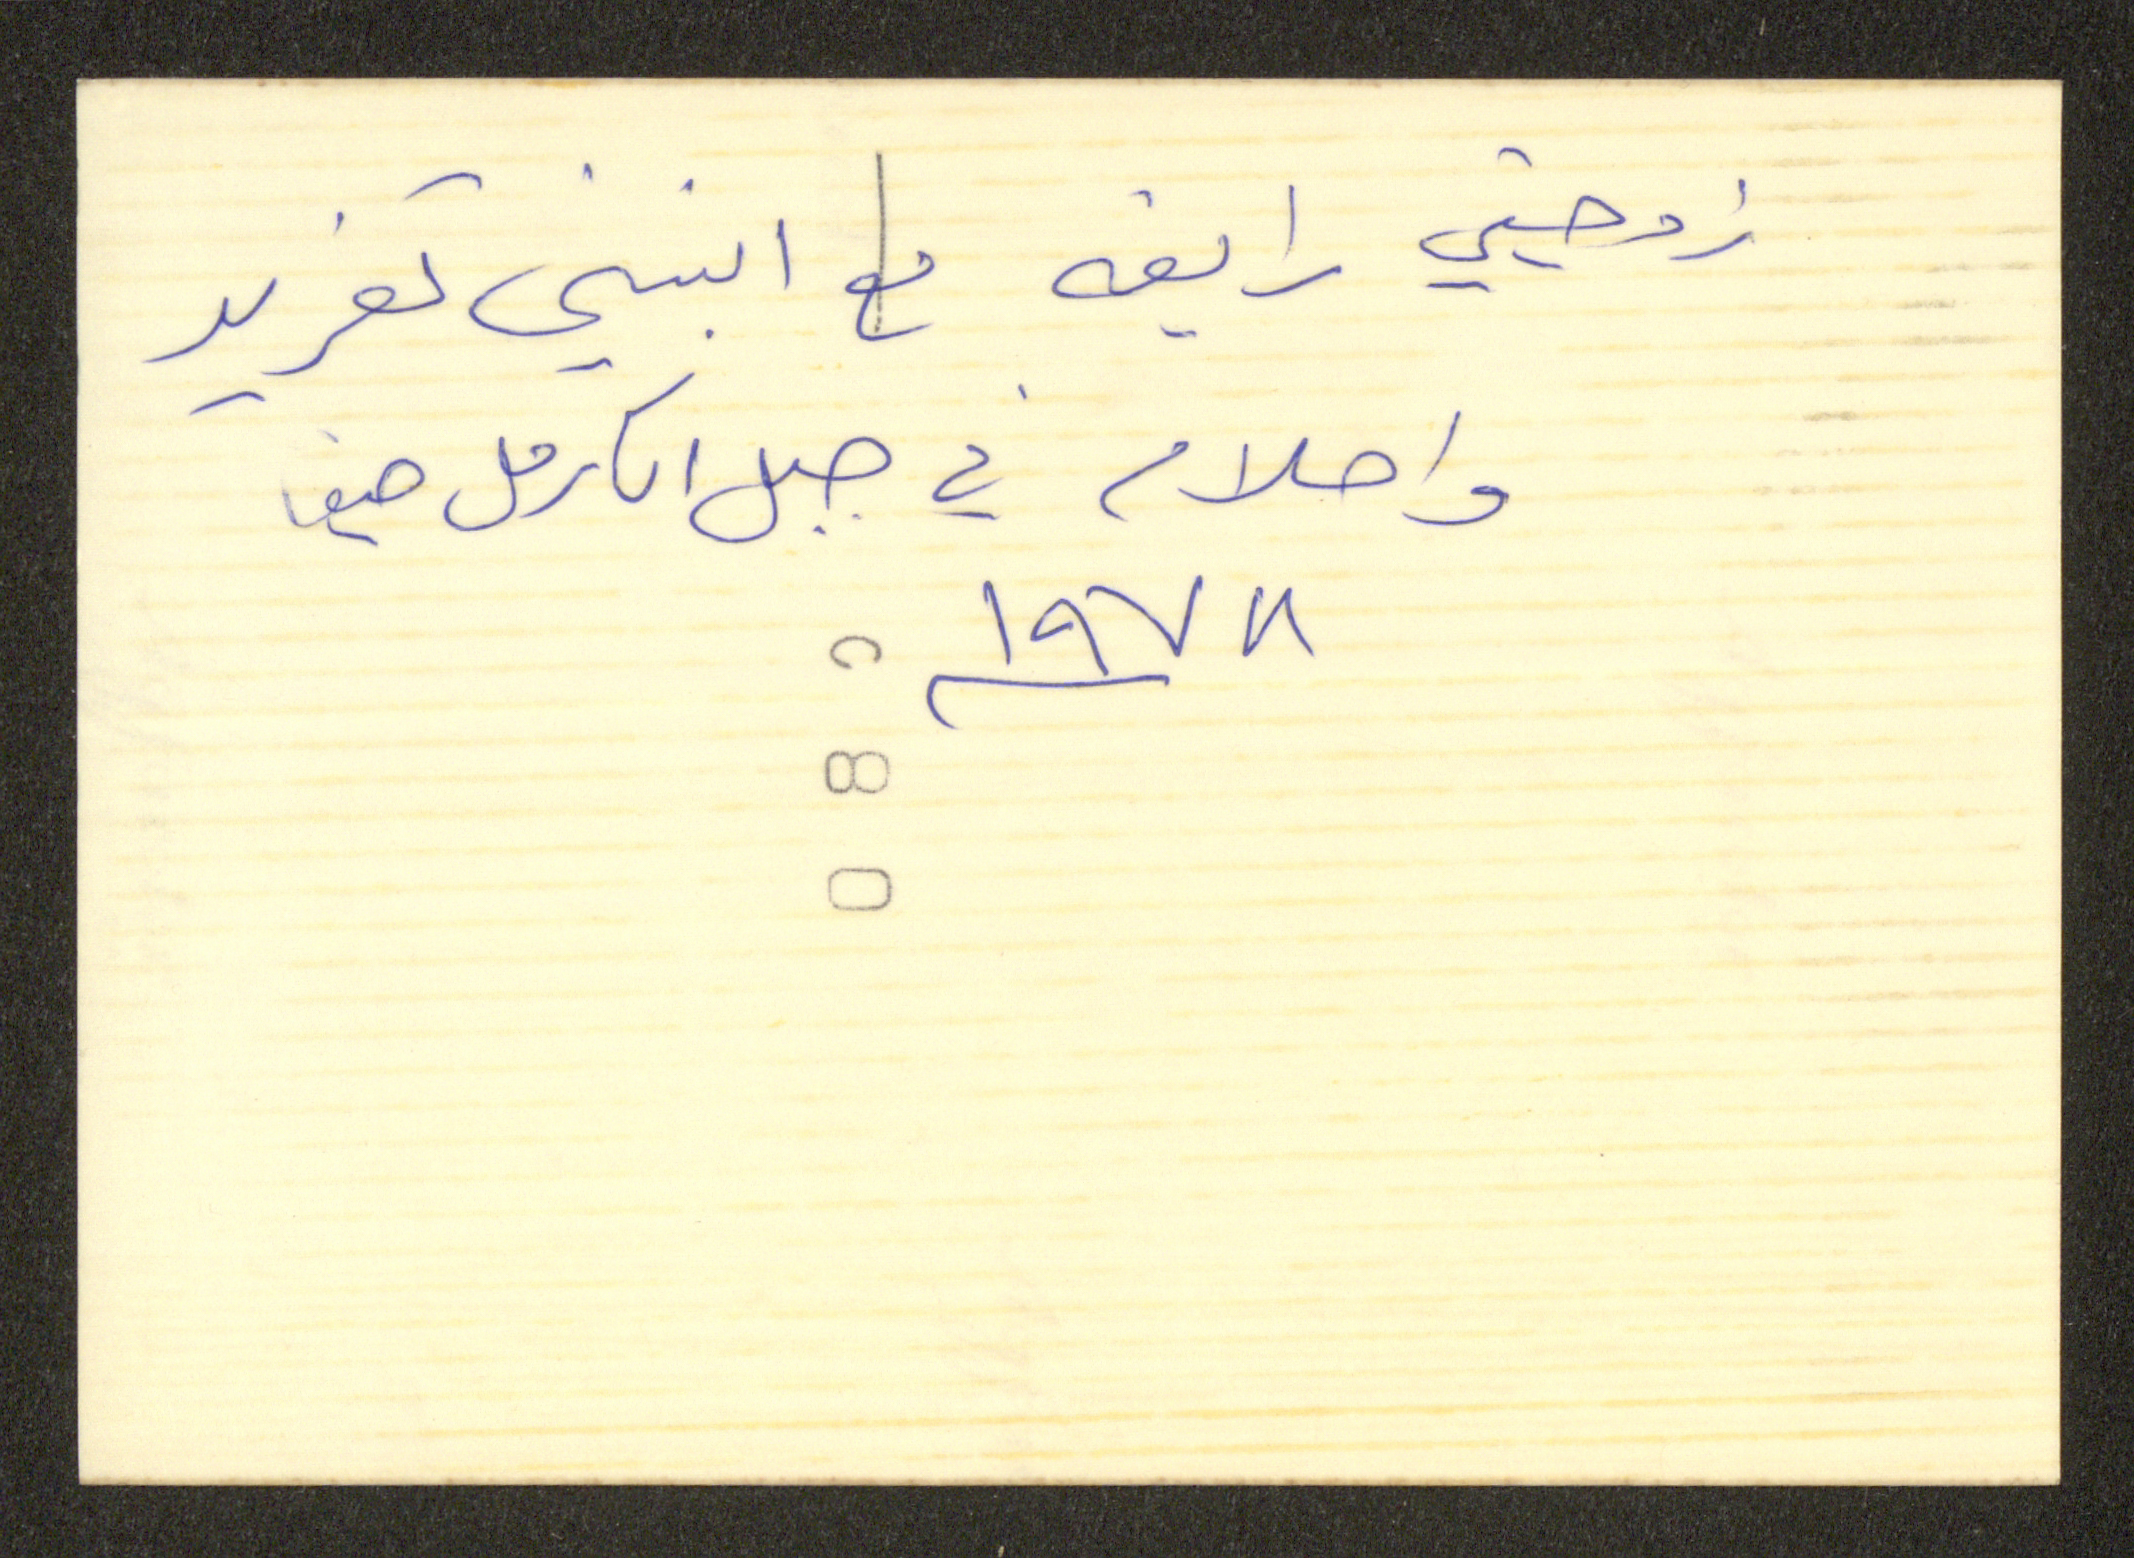 زوجتي رايقه مع ابنتي تغريد
واحلام في جبل الكارمل حيفا
١٩٧٨
C 8 0